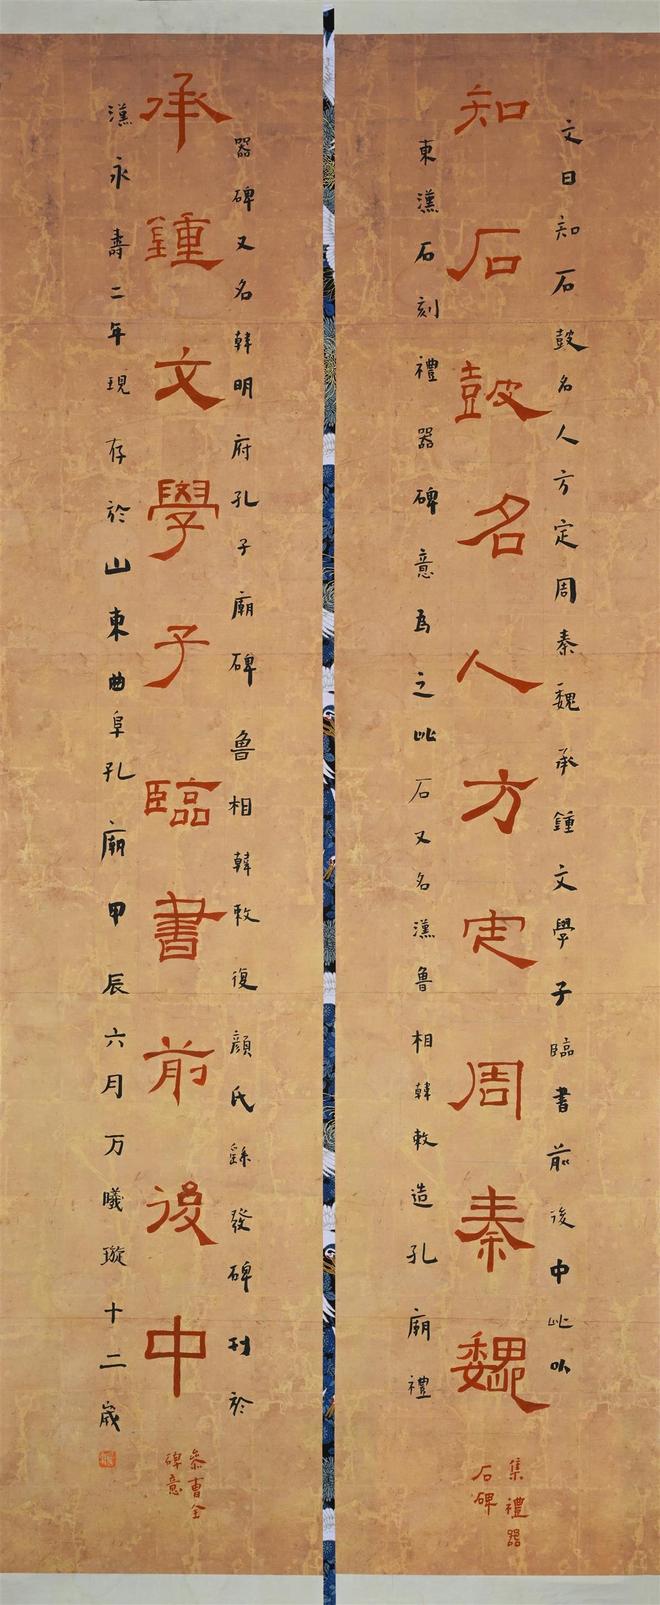 文曰知石鼓名人方定周秦魏承鍾文學子臨書前後中此以
知石鼓名人方定周秦魏
集禮器
石碑
東漢石刻禮器碑意為之此石又名漢魯相韓敕造孔廟禮
器碑又名韓明府孔子廟碑魯相韓敕復顏氏繇發碑刊於
承鍾文學子臨書前後中
參曹全
碑意
漢永壽二年現存於山東曲阜孔廟甲辰六月万曦璇十二歲